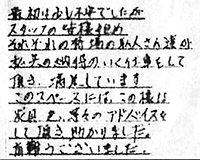 最初は少し不安でしたが
スタッフの皆様始め
それぞれの持場の職人さん達が
納得のいく仕事をして
頂き、満足しています
このスペースには、この様な
家具を、等々のアドバイスを
して頂き助かりました。
有難うございました。